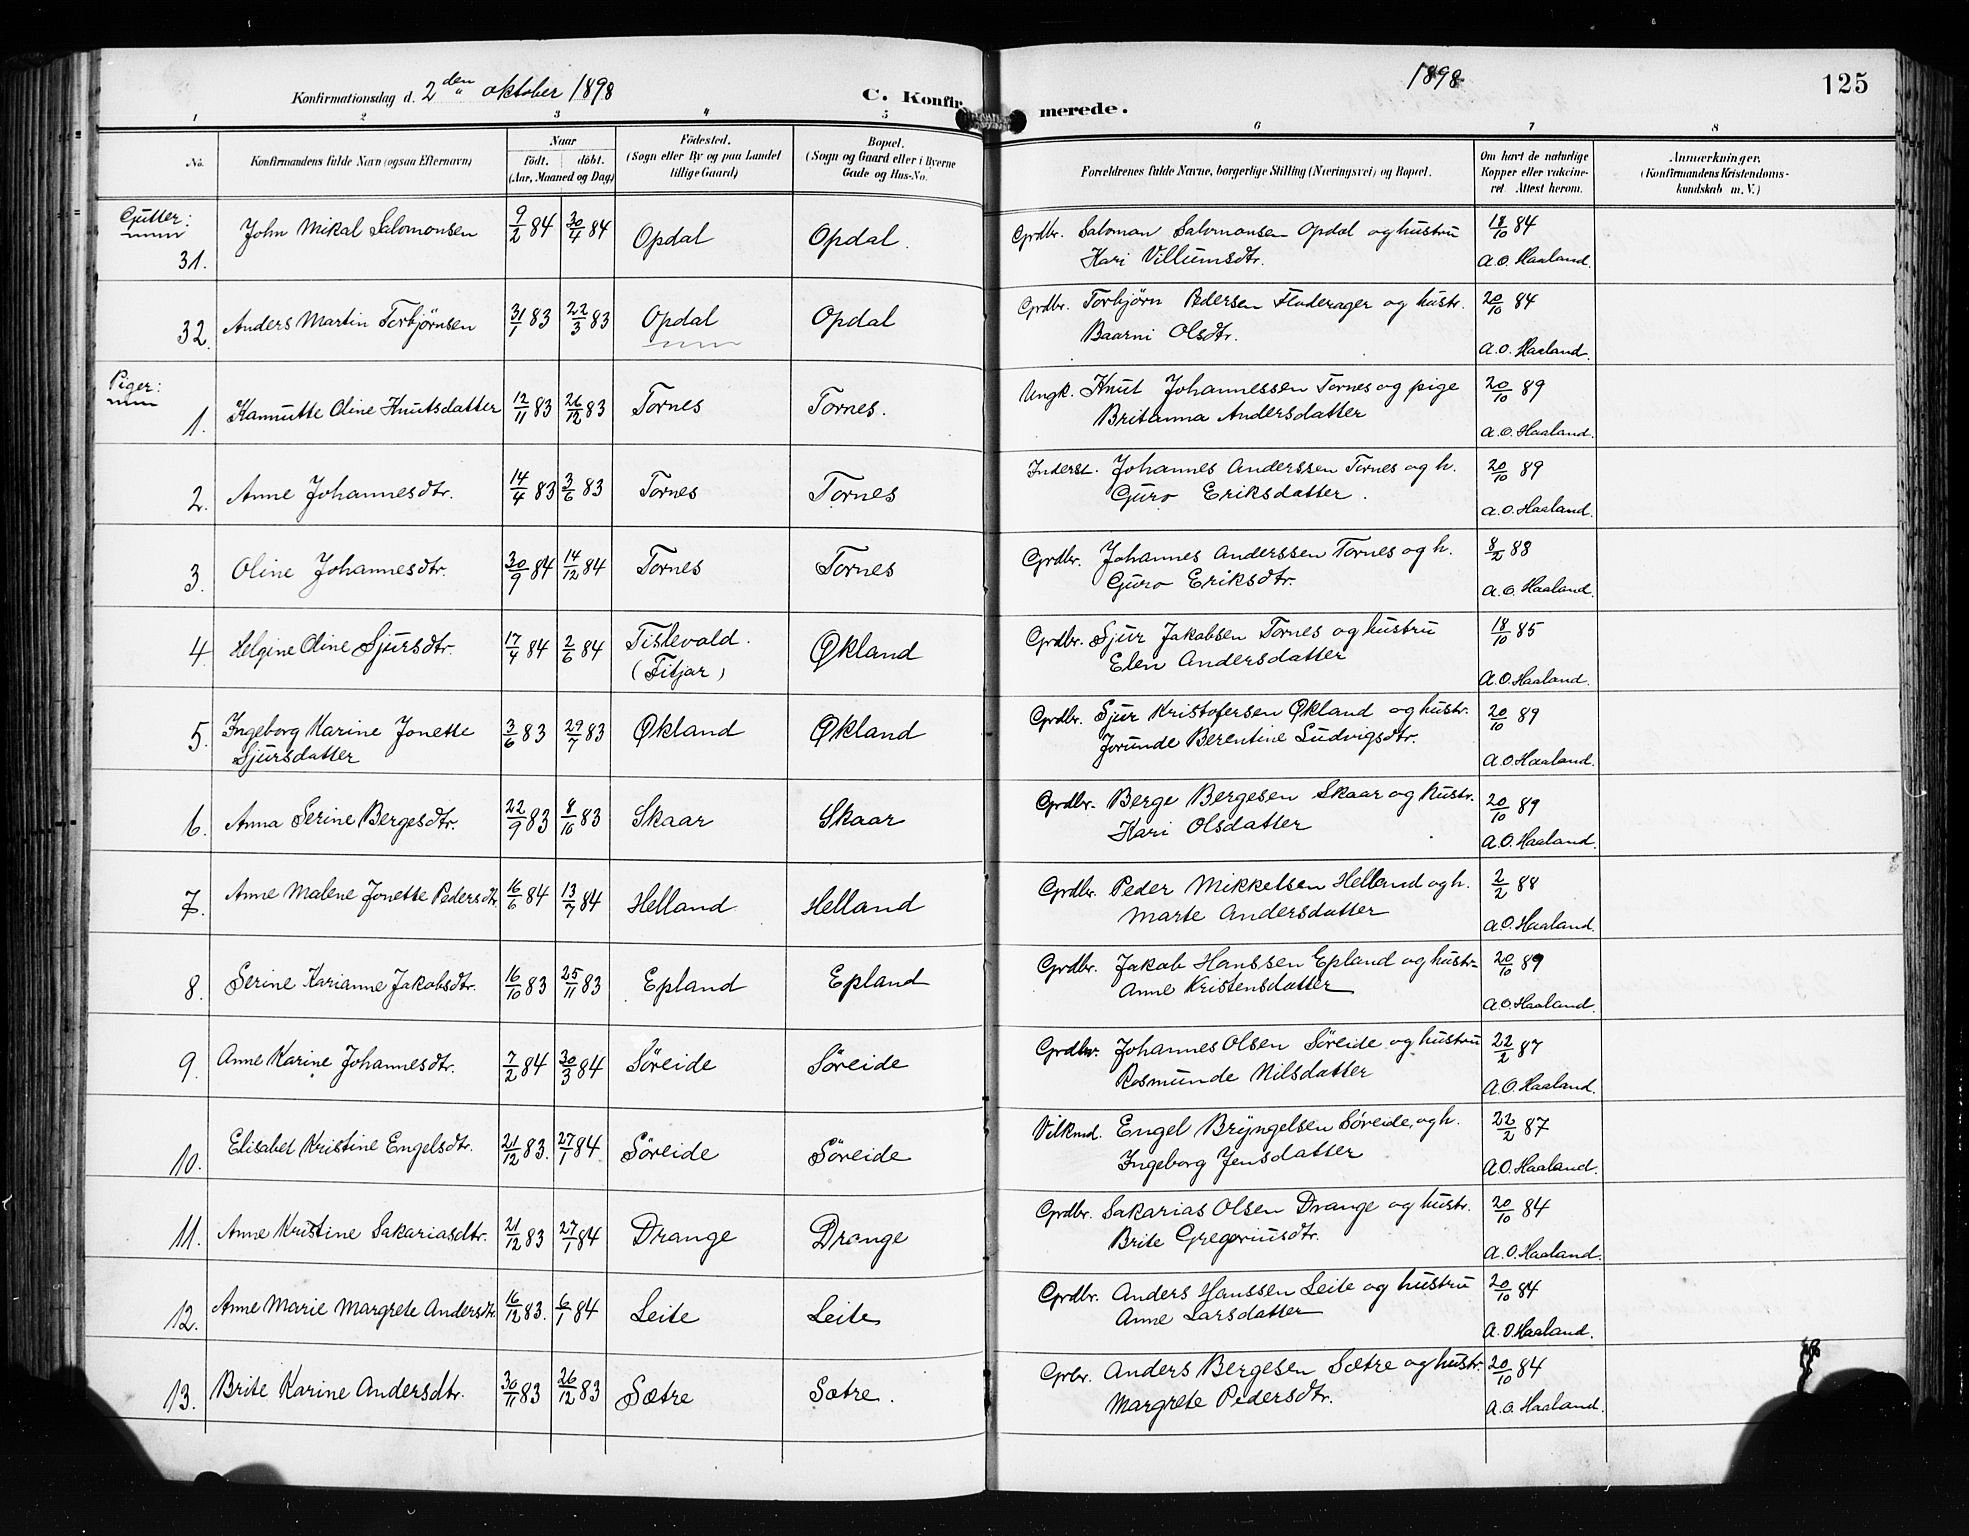 Konfirmationsdag d. 2den oktober 1898
C. Konfirmerede.
1898
125
1 2 3 4 5 6 7 8
No.
Konfirmandens fulde Navn (ogsaa Efternavn)
Naar
födt. döbt.
(Aar, Maaned og Dag)
Födested.
(Sogn eller By og paa Landet tillige Gaard)
Bopæl.
(Sogn og Gaard eller i Byerne Gade og Hus-No.
Forældrenes fulde Navne, borgerlige Stilling (Næringsvei) og Bopæl.
Om havt de naturlige Kopper eller vaccineret. Attest herom.
Anmærkninger.
(Konfirmandens Kristendomskundskab m. V.)
Gutter:
31. John Mikal Salomonsen 9/2 84 30/4 84 Opdal Opdal. Grdbr. Salomon Salomonsen Opdal og hustru 18/10 84
Kari Villumsdtr. A.O. Haaland.
32. Anders Martin Torbjørnsen 31/1 83 22/3 83 Opdal Opdal Grdbr. Torbjørn Pedersen Floderager og hustr. 20/10 84
Baarni Olsdtr. A.O. Haaland.
Piger:
1. Kanutte Oline Knutsdatter 12/11 83 26/12 83 Tornes Tornes. Ungk. Knut Johannessen Tornes og pige 20/10 89
Britanna Andersdatter A.O. Haaland.
2. Anne Johannesdtr. 14/4 83 3/6 83 Tornes Tornes Inderst. Johannes Anderssen Tornes og h. 20/10 89
Guro Eriksdatter. A.O. Haaland.
3. Oline Johannesdtr. 30/9 84 14/12 84 Tornes Tornes Grdbr. Johannes Anderssen Tornes og h. 8/2 88
Guro Eriksdtr. A.O. Haaland.
4. Helgine Oline Sjursdtr. 17/4 84 2/6 84 Tislevold. Økland Grdbr. Sjur Jakobsen Tornes og hustru 18/10 85
(Fitjar) Elen Andersdatter A.O. Haaland.
5. Ingeborg Karine Jonette 3/6 83 29/7 83 Økland Økland Grdbr. Sjur Kristofersen Økland og hustr. 20/10 89
Sjursdatter Jorunde Berentine Ludvigsdtr. A.O. Haaland.
6. Anna Serine Bergesdtr. 22/9 83 8/10 83 Skaar Skaar Grdbr. Berge Bergesen Skaar og hustr. 20/10 89
Kari Olsdatter A.O. Haaland.
7. Anne Malene Jonette Pedersdtr. 16/6 84 13/7 84 Helland Helland Grdbr. Peder Mikkelsen Helland og h. 2/2 88
Marte Andersdatter A.O. Haaland.
8. Serine Karianne Jakobsdtr. 16/10 83 25/11 83 Epland Epland Grdbr. Jakob Hanssen Epland og hustr. 20/10 89
Anne Kristensdatter A.O. Haaland.
9. Anne Karine Johannesdtr. 7/2 84 30/3 84 Söreide Söreide Grdbr. Johannes Olsen Söreide og hustru 22/2 87
Rosmunde Nilsdatter A.O. Haaland.
10. Elisabet Kristine Engelsdtr. 21/12 83. 27/1 84 Söreide Söreide Vilkmd. Engel Bryngelsen Söreide, og h. 22/2 87
Ingeborg Jensdatter A.O. Haaland.
11. Anne Kristine Sakariasdtr. 21/12 83 27/1 84 Drange Drange Grdbr. Sakarias Olsen Drange og hustr. 20/10 84
Brite Gregoriusdtr. A.O. Haaland.
12. Anne Marie Margrete Andersdtr. 16/12 83. 6/1 84 Leite Leite Grdbr. Anders Hanssen Leite og hustru 20/10 84
Anne Larsdatter A.O. Haaland.
13. Brite Karine Andersdtr. 30/11 83 26/12 83 Sætre Sætre. Grbr. Anders Bergesen Sætre og hustr. 20/10 84
Margrete Pedersdtr. A.O. Haaland.